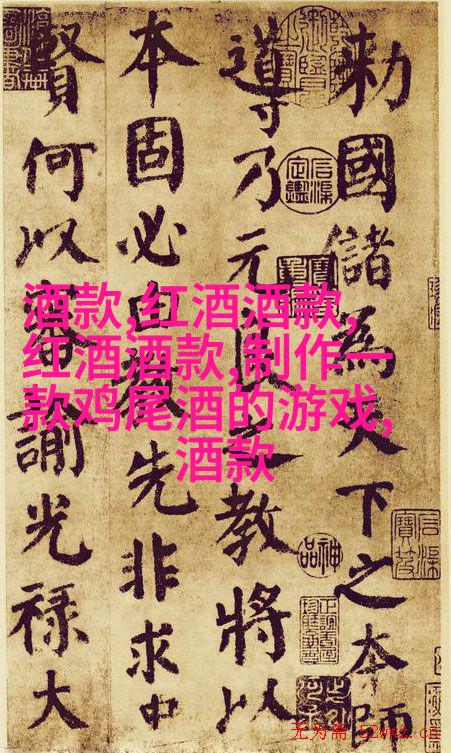 勅國儲為天下之本師
導乃元良之教將以
本固必由教先非求中
賢何以審諭光祿大
酒款,红酒酒款,
红酒酒款,制作一
款鸡尾酒的游戏,
酒款
无为斋